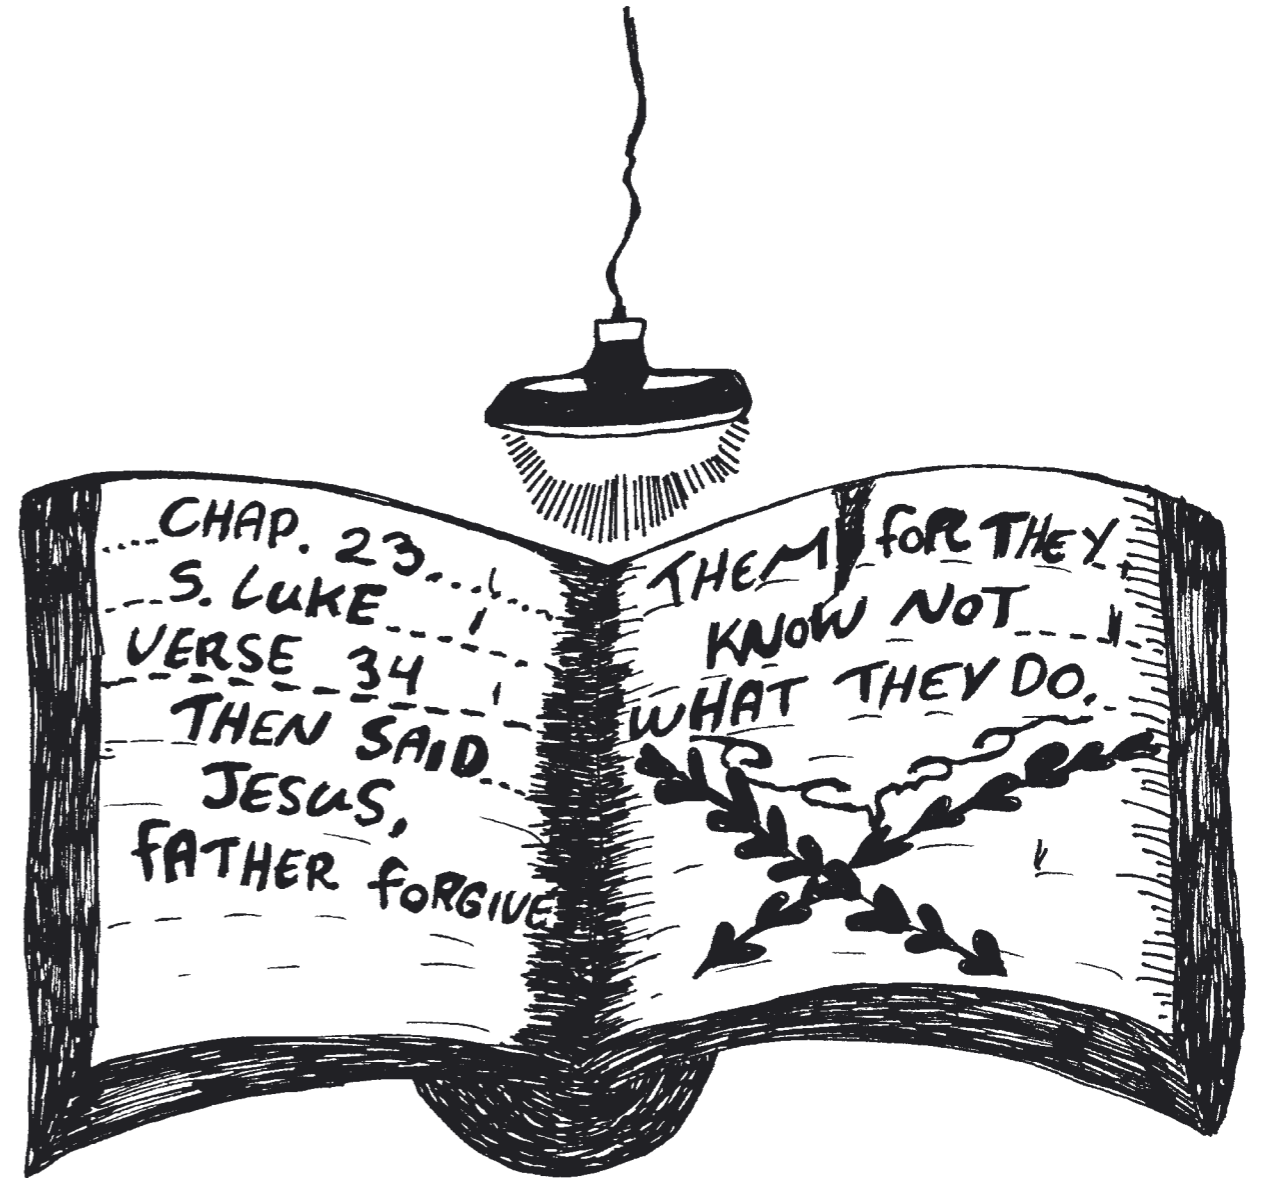 CHAP. 23
S. LUKE
VERSE 34
THEN SAID
JESUS,
FATHER FORGIVE
THEM FOR THEY
KNOW NOT
WHAT THEY DO.